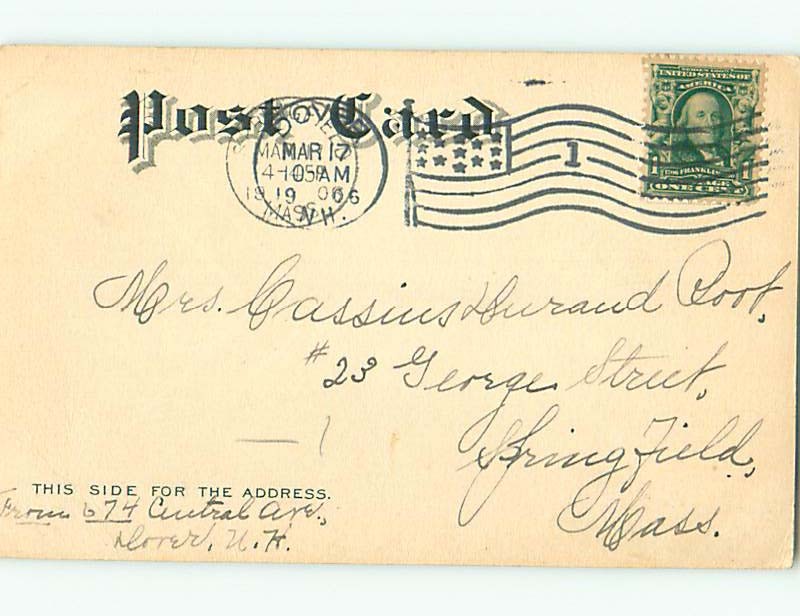 Post Card
DOVER
MAR 17
AM
1906
N.H.
MASS
1
SERIES 1902
UNITED STATES OF
AMERICA
FRANKLIN
1 1
ONE CENT
Mrs. Cassius Durand Root,
#23 George Street,
Springfield,
Mass.
THIS SIDE FOR THE ADDRESS.
From 674 Central Ave.,
Dover, N.H.